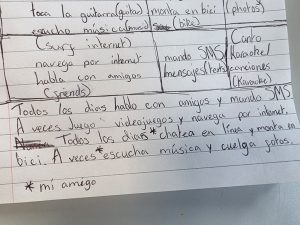 toca la guitarra (guitar) monta en bici (photos)
escucho música (music) (bike)
(surf internet)
navega por internet mando SMS Canto
habla con amigos mensajes (texts) karaoke/
(friends) canciones
(karaoke)
Todos los dias hablo con amigos y mundo SMS.
A veces Juego videojuegos y navega por internet.
Todos los dias * chatea en línea y monta en
bici. A veces * escucha música y cuelga fotos.
* mi amigo